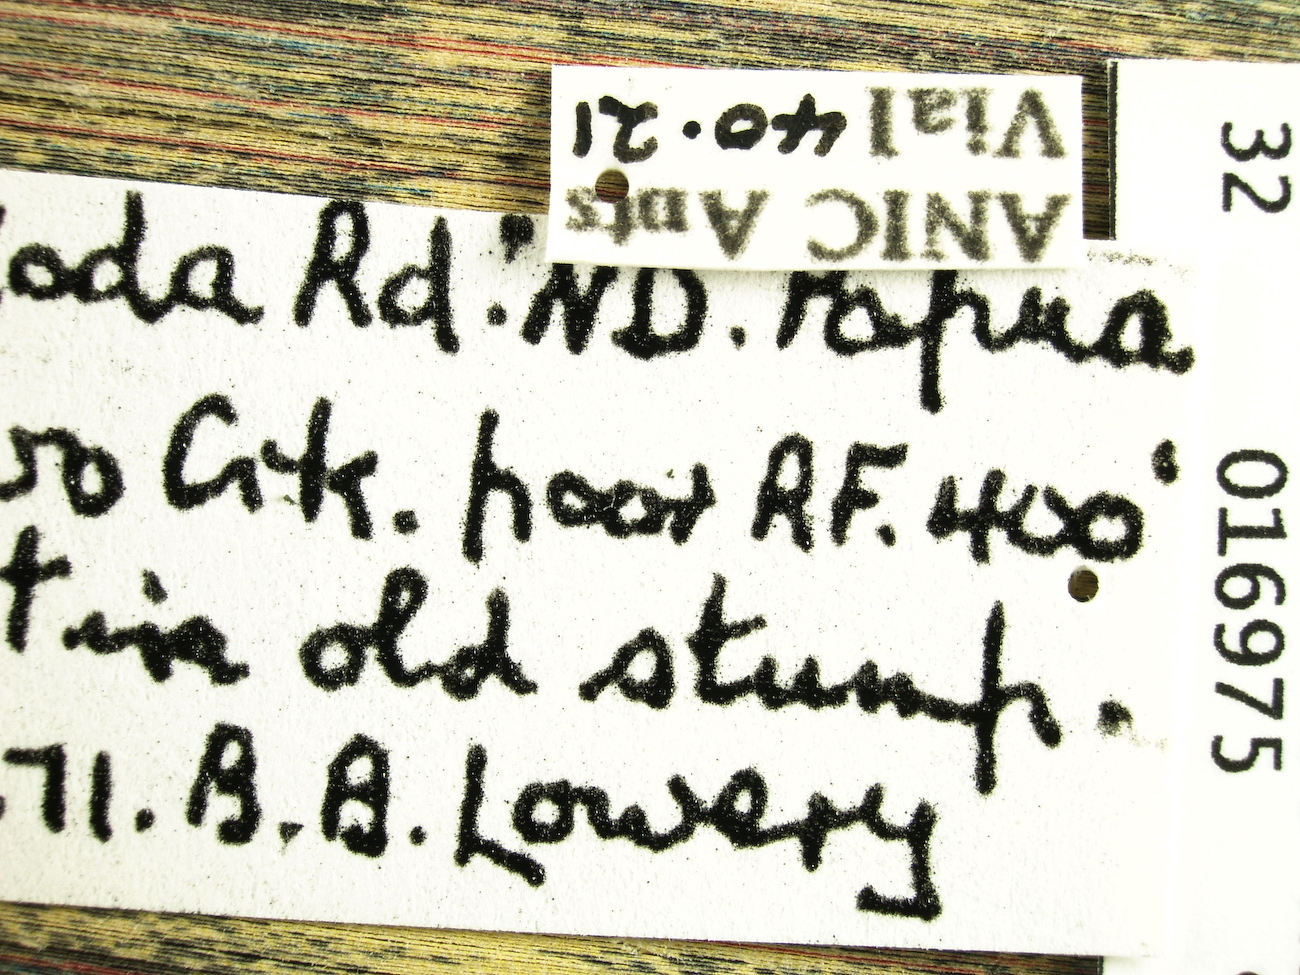 ANIC Ants
Vial 40.21
oda Rd. ND. Papua
Crk. poor RF. 400'
t in old stump.
.71. B.B. Lowery
32
016975